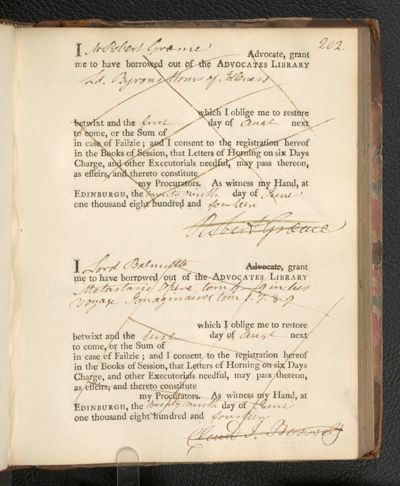 202.
I Mr Robert Græme Advocate, grant
me to have borrowed out of the ADVOCATES LIBRARY
Ld. Byrons Hours of Idleness
which I oblige me to restore
betwixt and the first day of Augt next
to come, or the Sum of
in case of Failzie; and I consent to the registration hereof
in the Books of Session, that Letters of Horning on six Days
Charge, and other Executorials needful, may pass thereon,
as effeirs, and thereto constitute
my Procurators. As witness my Hand, at
EDINBURGH, the twenty ninth day of June
one thousand eight hundred and fourteen
Robert Græme
I Lord Balmuto Advocate, grant
me to have borrowed out of the ADVOCATES LIBRARY
Metastasio Opere tom
Voyages Imaginaires tom 1. 7. 8 9
which I oblige me to restore
betwixt and the first day of Augt next
to come, or the Sum of
in case of Failzie; and I consent to the registration hereof
in the Books of Session, that Letters of Horning on six Days
Charge, and other Executorials needful, may pass thereon,
as effeirs, and thereto constitute
my Procurators. As witness my Hand, at
EDINBURGH, the twenty ninth day of June
one thousand eight hundred and fourteen
Claud I. Boswell